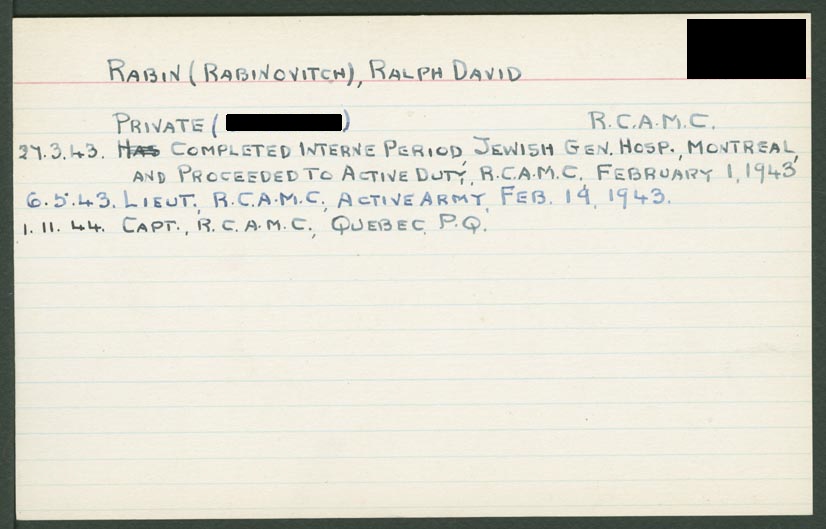 RABIN (RABINOVITCH), RALPH DAVID
PRIVATE ( ) R.C.A.M.C.
27.3.43. HAS COMPLETED INTERNE PERIOD, JEWISH GEN. HOSP., MONTREAL,
AND PROCEEDED TO ACTIVE DUTY, R.C.A.M.C. FEBRUARY 1, 1943
6.5.43. LIEUT., R.C.A.M.C., ACTIVE ARMY, FEB. 14, 1943.
1.11.44. CAPT., R.C.A.M.C., QUEBEC, P.Q.